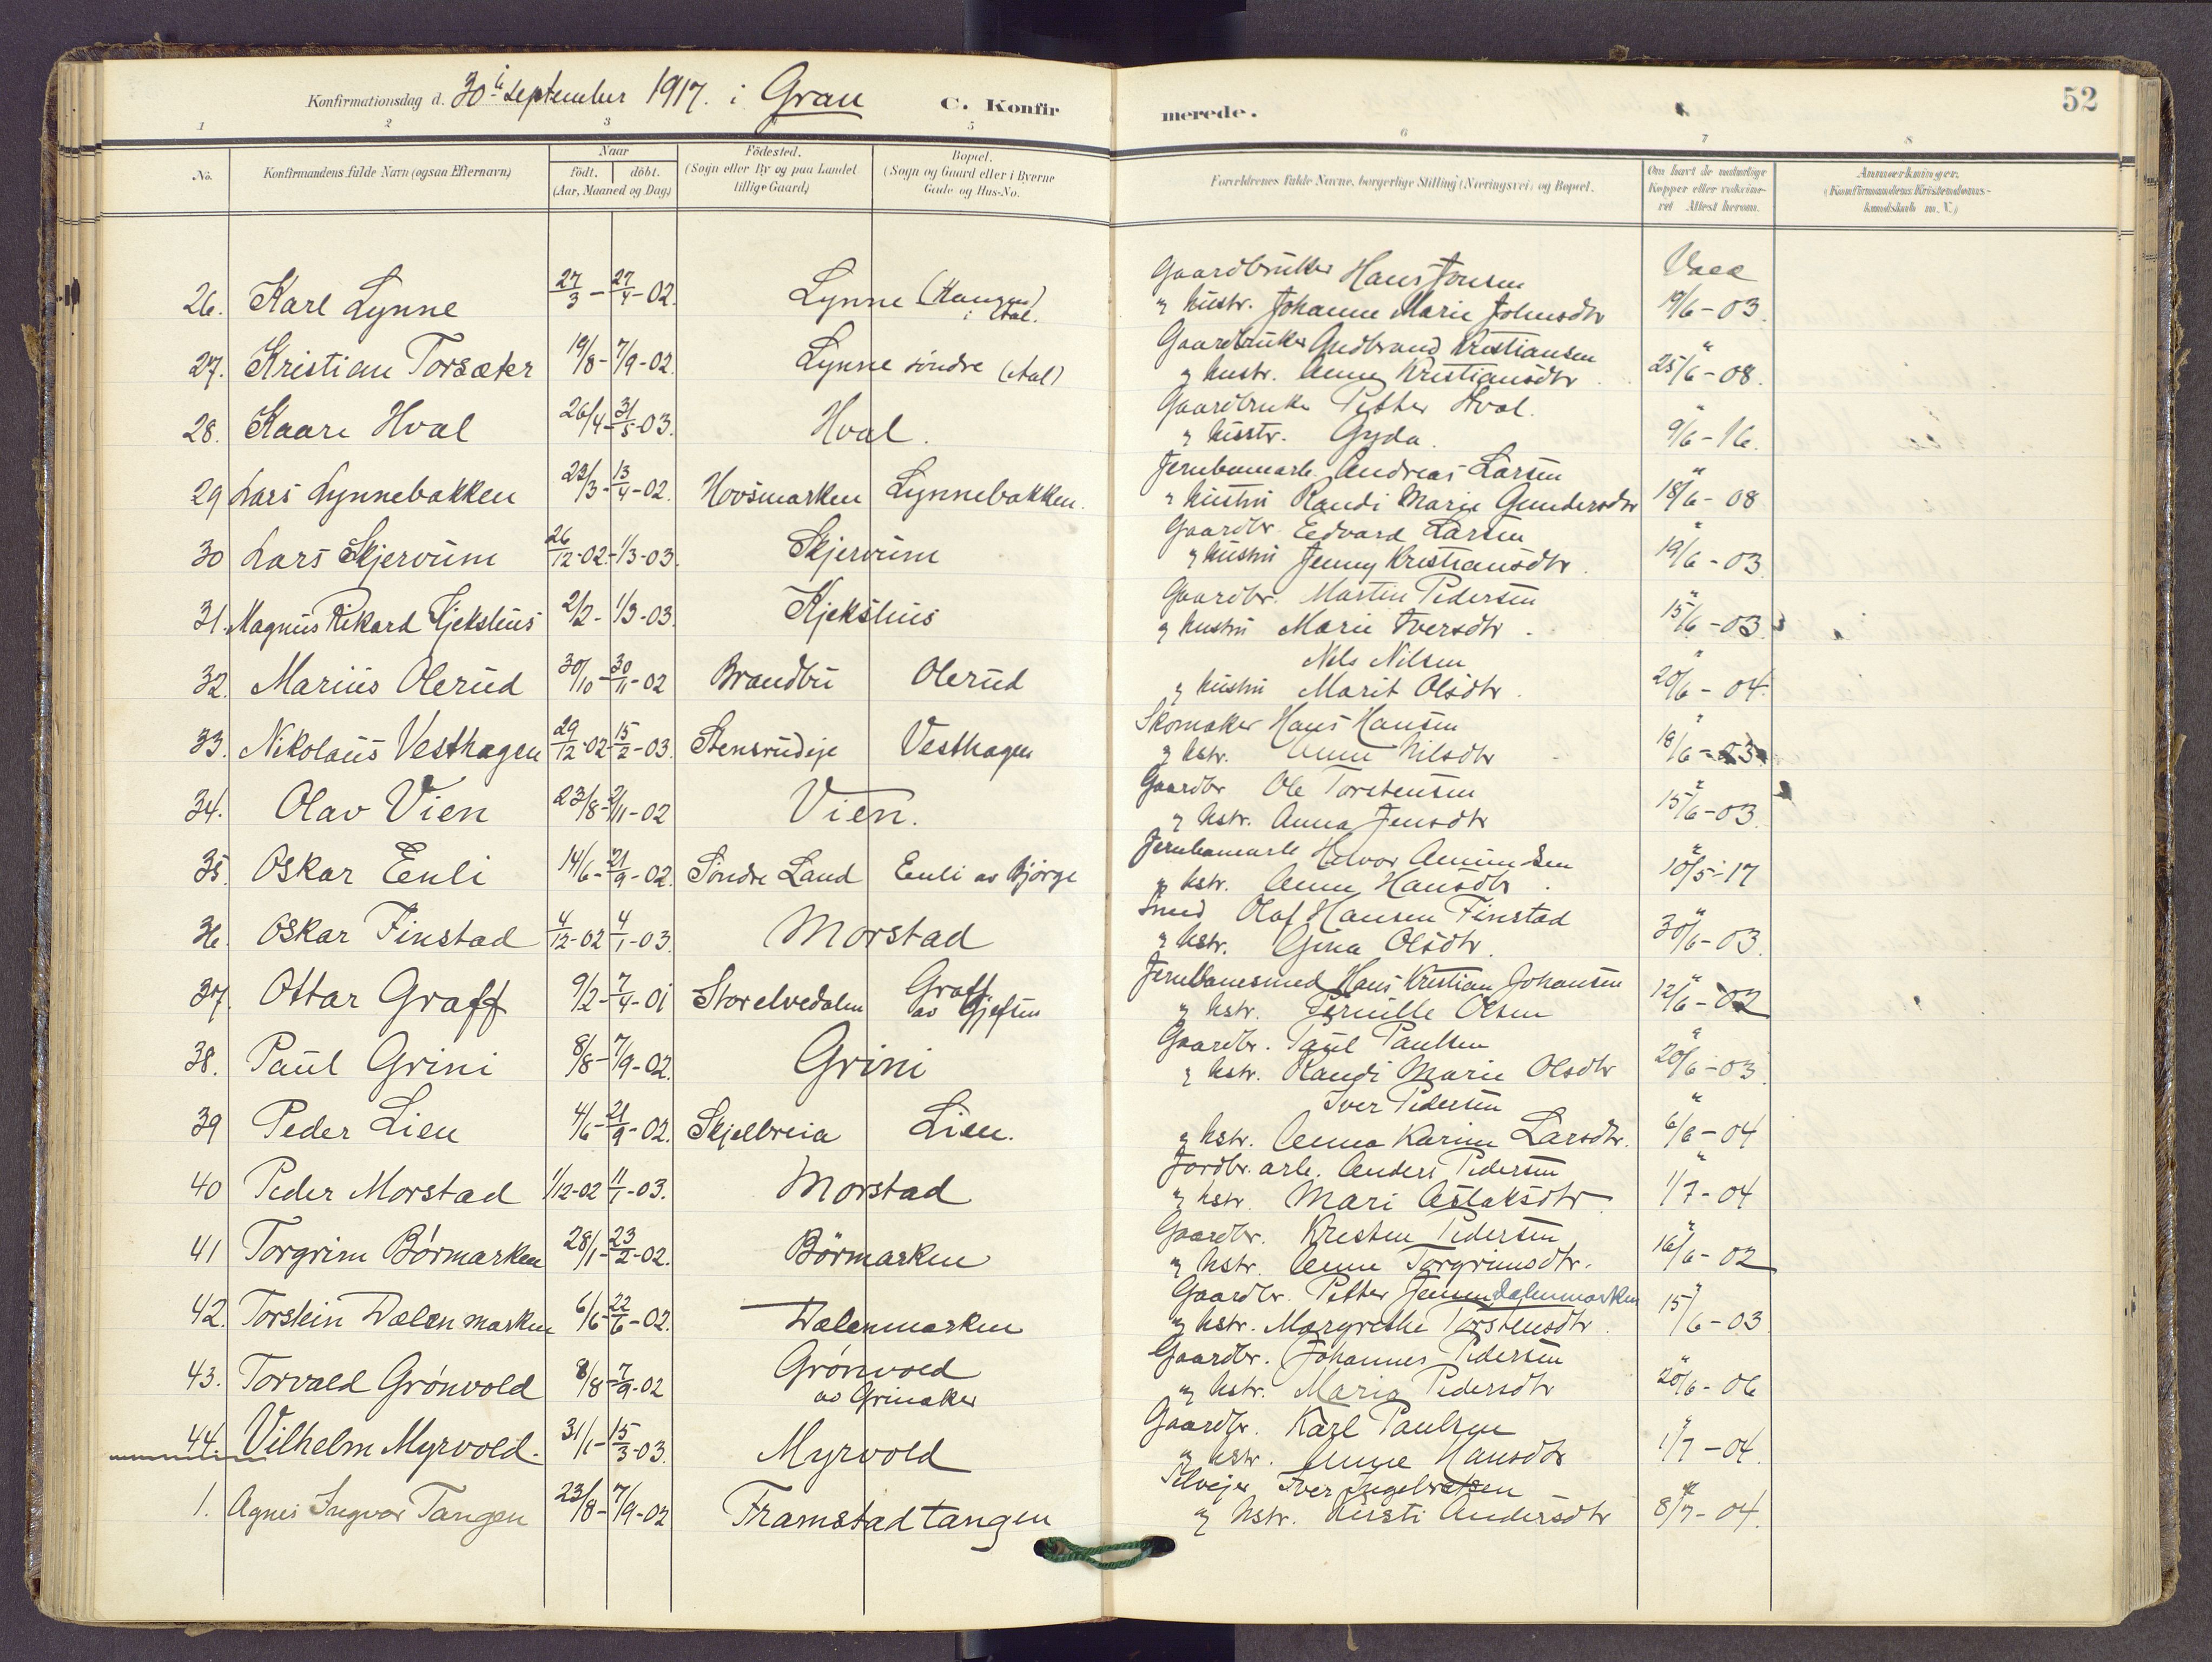 Konfirmationsdag d. 30te september 1917. i Gran
C. Konfirmerede.
52
1 2 3 5 6 7 8
No. Konfirmandens fulde Navn (ogsaa Efternavn) Naar födt. döbt. (Aar, Maaned og Dag) Födested. (Sogn eller By og paa Landet tillige Gaard) Bopæl. (Sogn og Gaard eller i Byerne Gade og Hus-No. Forældrenes fulde Navne, borgerlige Stilling (Næringsvei) og Bopæl. Om havt de naturlige Kopper eller vakcineret Attest herom. Anmærkninger. (Konfirmandens Kristendomskundskab m. V.)
Gaardbruker Hans Jonsen Vacc
26. Karl Lynne 27/3 - 27/4-02. Lynne i Aal. " hustr. Johanne Marie Johnsdtr 19/6-03.
Gaardbruker Gudbrand Kristiansen "
27. Kristian Torsæter 19/8-7/9-02. Lynne söndre (Aal) og hustr. Anne Kristiansdtr. 25/6-08.
Gaardbruker Petter Hval. "
28. Kaare Hval 26/4-31/5-03. Hval. " hustr. Gyda. 9/6-16.
Jernbanearb. Andreas Larsen "
29 Lars Lynnebakken 23/3-13/4-02. Hovsmarken Lynnebakken. " hustru Randi Marie Gundersdtr 18/6-08
Gaardbr. Edvard Larsen "
30 Lars Skjervum 26/12-02-1/3-03. Skjervum " hustru Jenny Kristiansdtr. 19/6-03.
Gaardbr. Martin Pedersen "
31. Magnus Rikard Kjekshus 2/2-1/3-03. Kjekshus og hustru Marie Iversdtr. 15/6-03.
Nils Nilsen "
32. Marius Olerud 30/10-30/11-02 Brandbu Olerud og hustru Marit Olsdtr. 20/6-04.
Skomaker Hans Hansen "
33. Nikolaus Vesthagen 29/12-02-15/2-03. Stensrudeje Vesthagen og hstr. Anne Nilsdtr 18/6-03
Gaardbr Ole Torstensen "
34. Olav Vien 23/8-2/11-02 Vien. og hstr. Anna Jensdtr 15/6-03.
Jernbanearb Halvor Amundsen "
35. Oskar Eenli 14/6-21/9-02. Söndre Land Eenli av Björge og hstr. Anne Hansdtr. 10/5-17
Smed Olaf Hansen Finstad "
36. Oskar Finstad 4/12-02 4/1-03. Morstad og hstr. Gina Olsdtr. 30/6-03.
Jernbanesmed Hans Kristian Johansen "
37. Ottar Graff 9/2-7/4-01 Storelvedalen Graff av Gjefsen og hstr. Pernille Olsen 12/6-02
Gaardbr. Paul Paulsen "
38. Paul Grini 8/8-7/9-02. Grini og hstr. Randi Marie Olsdtr 20/6-03.
Iver Pedersen "
39 Peder Lien 4/6-21/9-02. Skjelbreia Lien. og hstr. Anna Karine Larsdtr. 6/6-04
Jordbr. arb. Anders Pedersen "
40 Peder Morstad 1/12-02 11/1-03. Morstad og hstr. Mari Aslaksdtr. 1/7-04
Gaardbr. Kresten Pedersen "
41 Torgrim Börmarken 28/1-23/2-02. Börmarken og hstr. Anne Torgrimsdtr. 16/6-02
Gaardbr. Petter Jensen Dalenmarken "
42. Torstein Dælenmarken 6/6-22/6-02. Dælenmarken og hstr. Margrethe Torstensdtr. 15/6-03
Gaardbr. Johannes Pedersen "
43. Torvald Grönvold 8/8-7/9-02 Grönvold av Grinaker og hstr. Maria Pedersdtr 20/6-06
Gaardbr. Karl Paulsen "
44. Vilhelm Myrvold. 31/1-15/3-03. Myrvold og hstr. Anne Hansdtr 1/7-04.
Selvejer Iver Ingebretsen "
1. Agnes Ingvar Tangen 23/8-7/9-02 Framstadtangen og hstr. Kirsti Andersdtr 8/7-04.